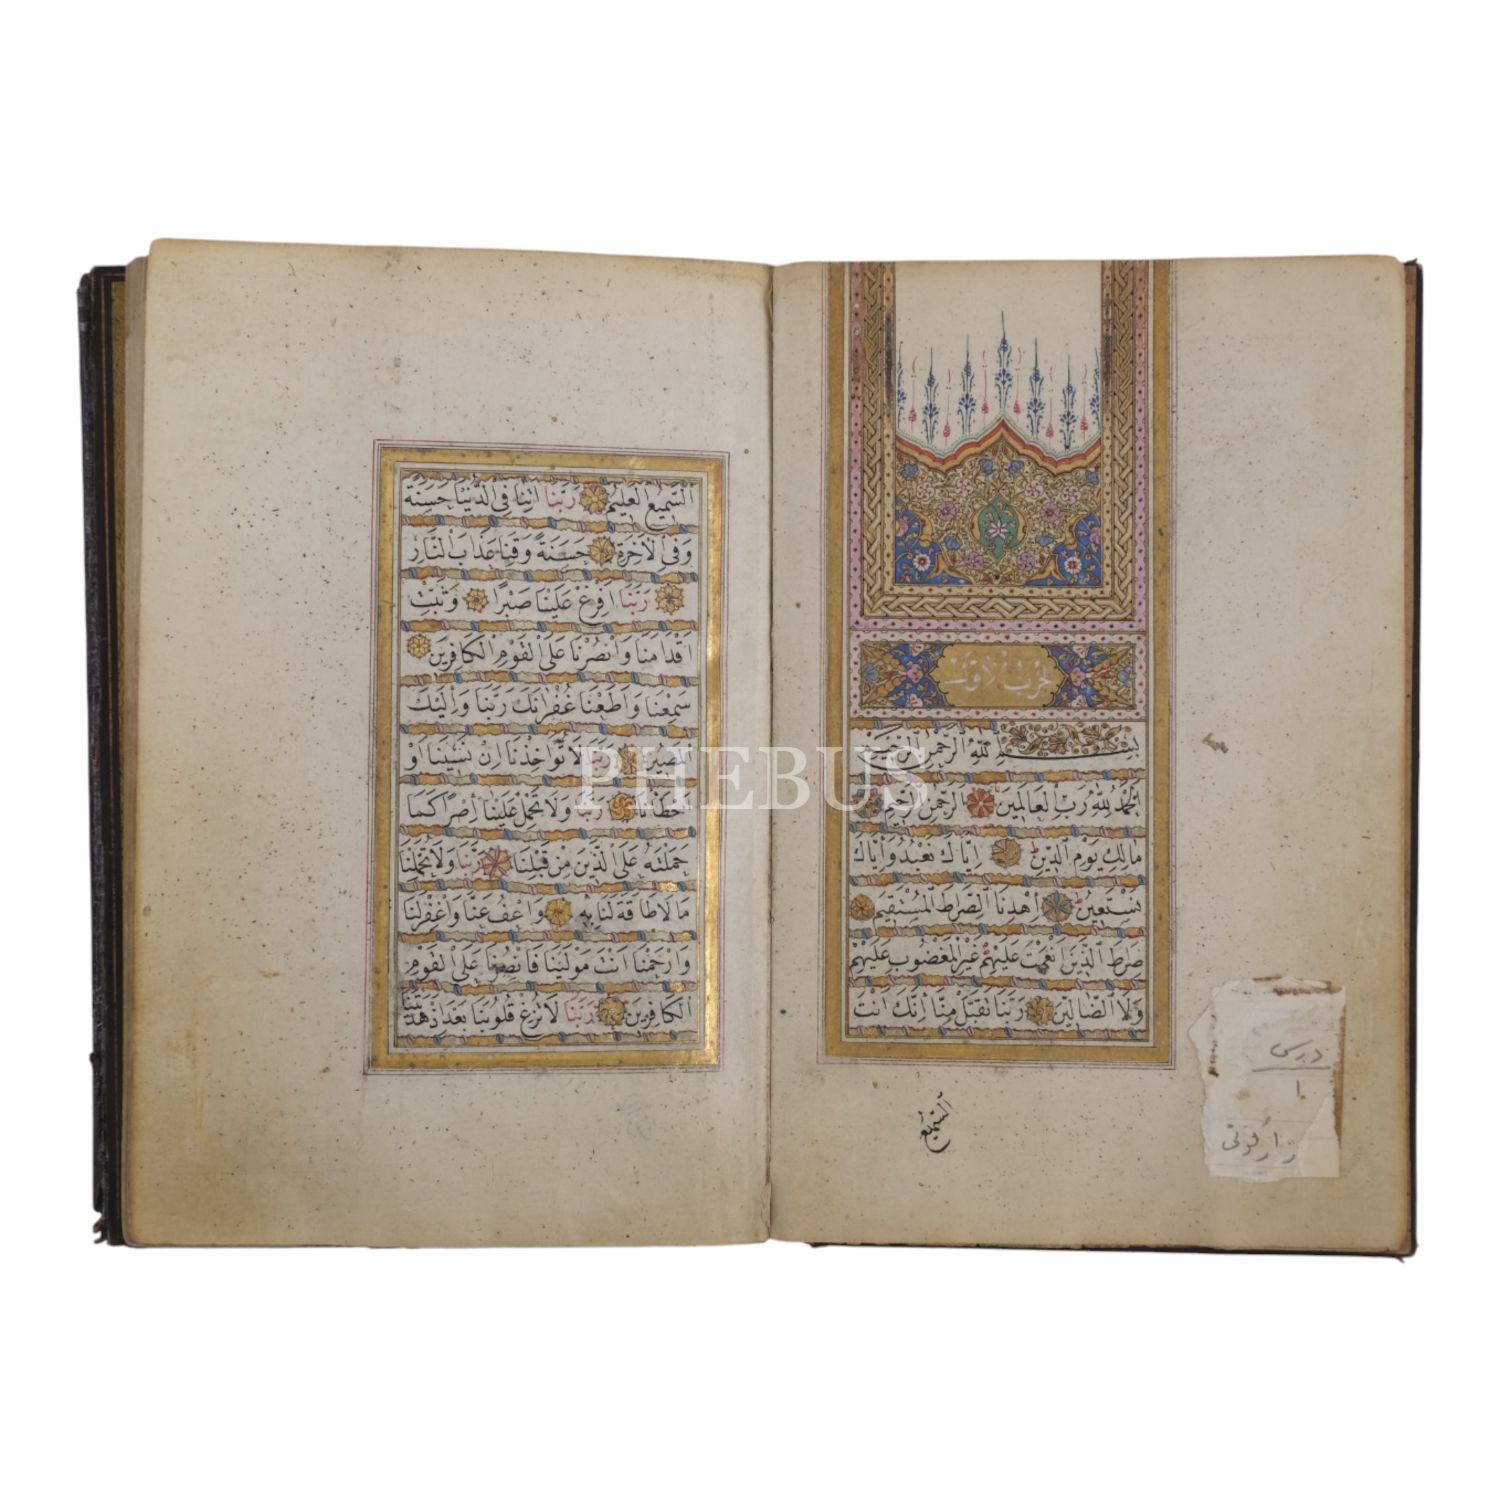 الحزب الاول
بسم الله الرحمن الرحيم
الحمد لله رب العالمين الرحمن الرحيم
مالك يوم الدين اياك نعبد واياك
نستعين اهدنا الصراط المستقيم
صراط الذين انعمت عليهم غير المغضوب عليهم
ولا الضالين ربنا تقبل منا انك انت
السميع
درسى
١٠
السميع العليم ربنا اتنا في الدنيا حسنة
وفي الاخرة حسنة وقنا عذاب النار
ربنا افرغ علينا صبرا وثبت
اقدامنا وانصرنا على القوم الكافرين
سمعنا واطعنا غفرانك ربنا واليك
المصير ربنا لا تؤاخذنا ان نسينا او
اخطانا ربنا ولا تحمل علينا اصرا كما
حملته على الذين من قبلنا ربنا ولا تحملنا
ما لا طاقة لنا به واعف عنا واغفرلنا
وارحمنا انت مولينا فانصرنا على القوم
الكافرين ربنا لا تزغ قلوبنا بعد اذ هديتنا
PHEBUS